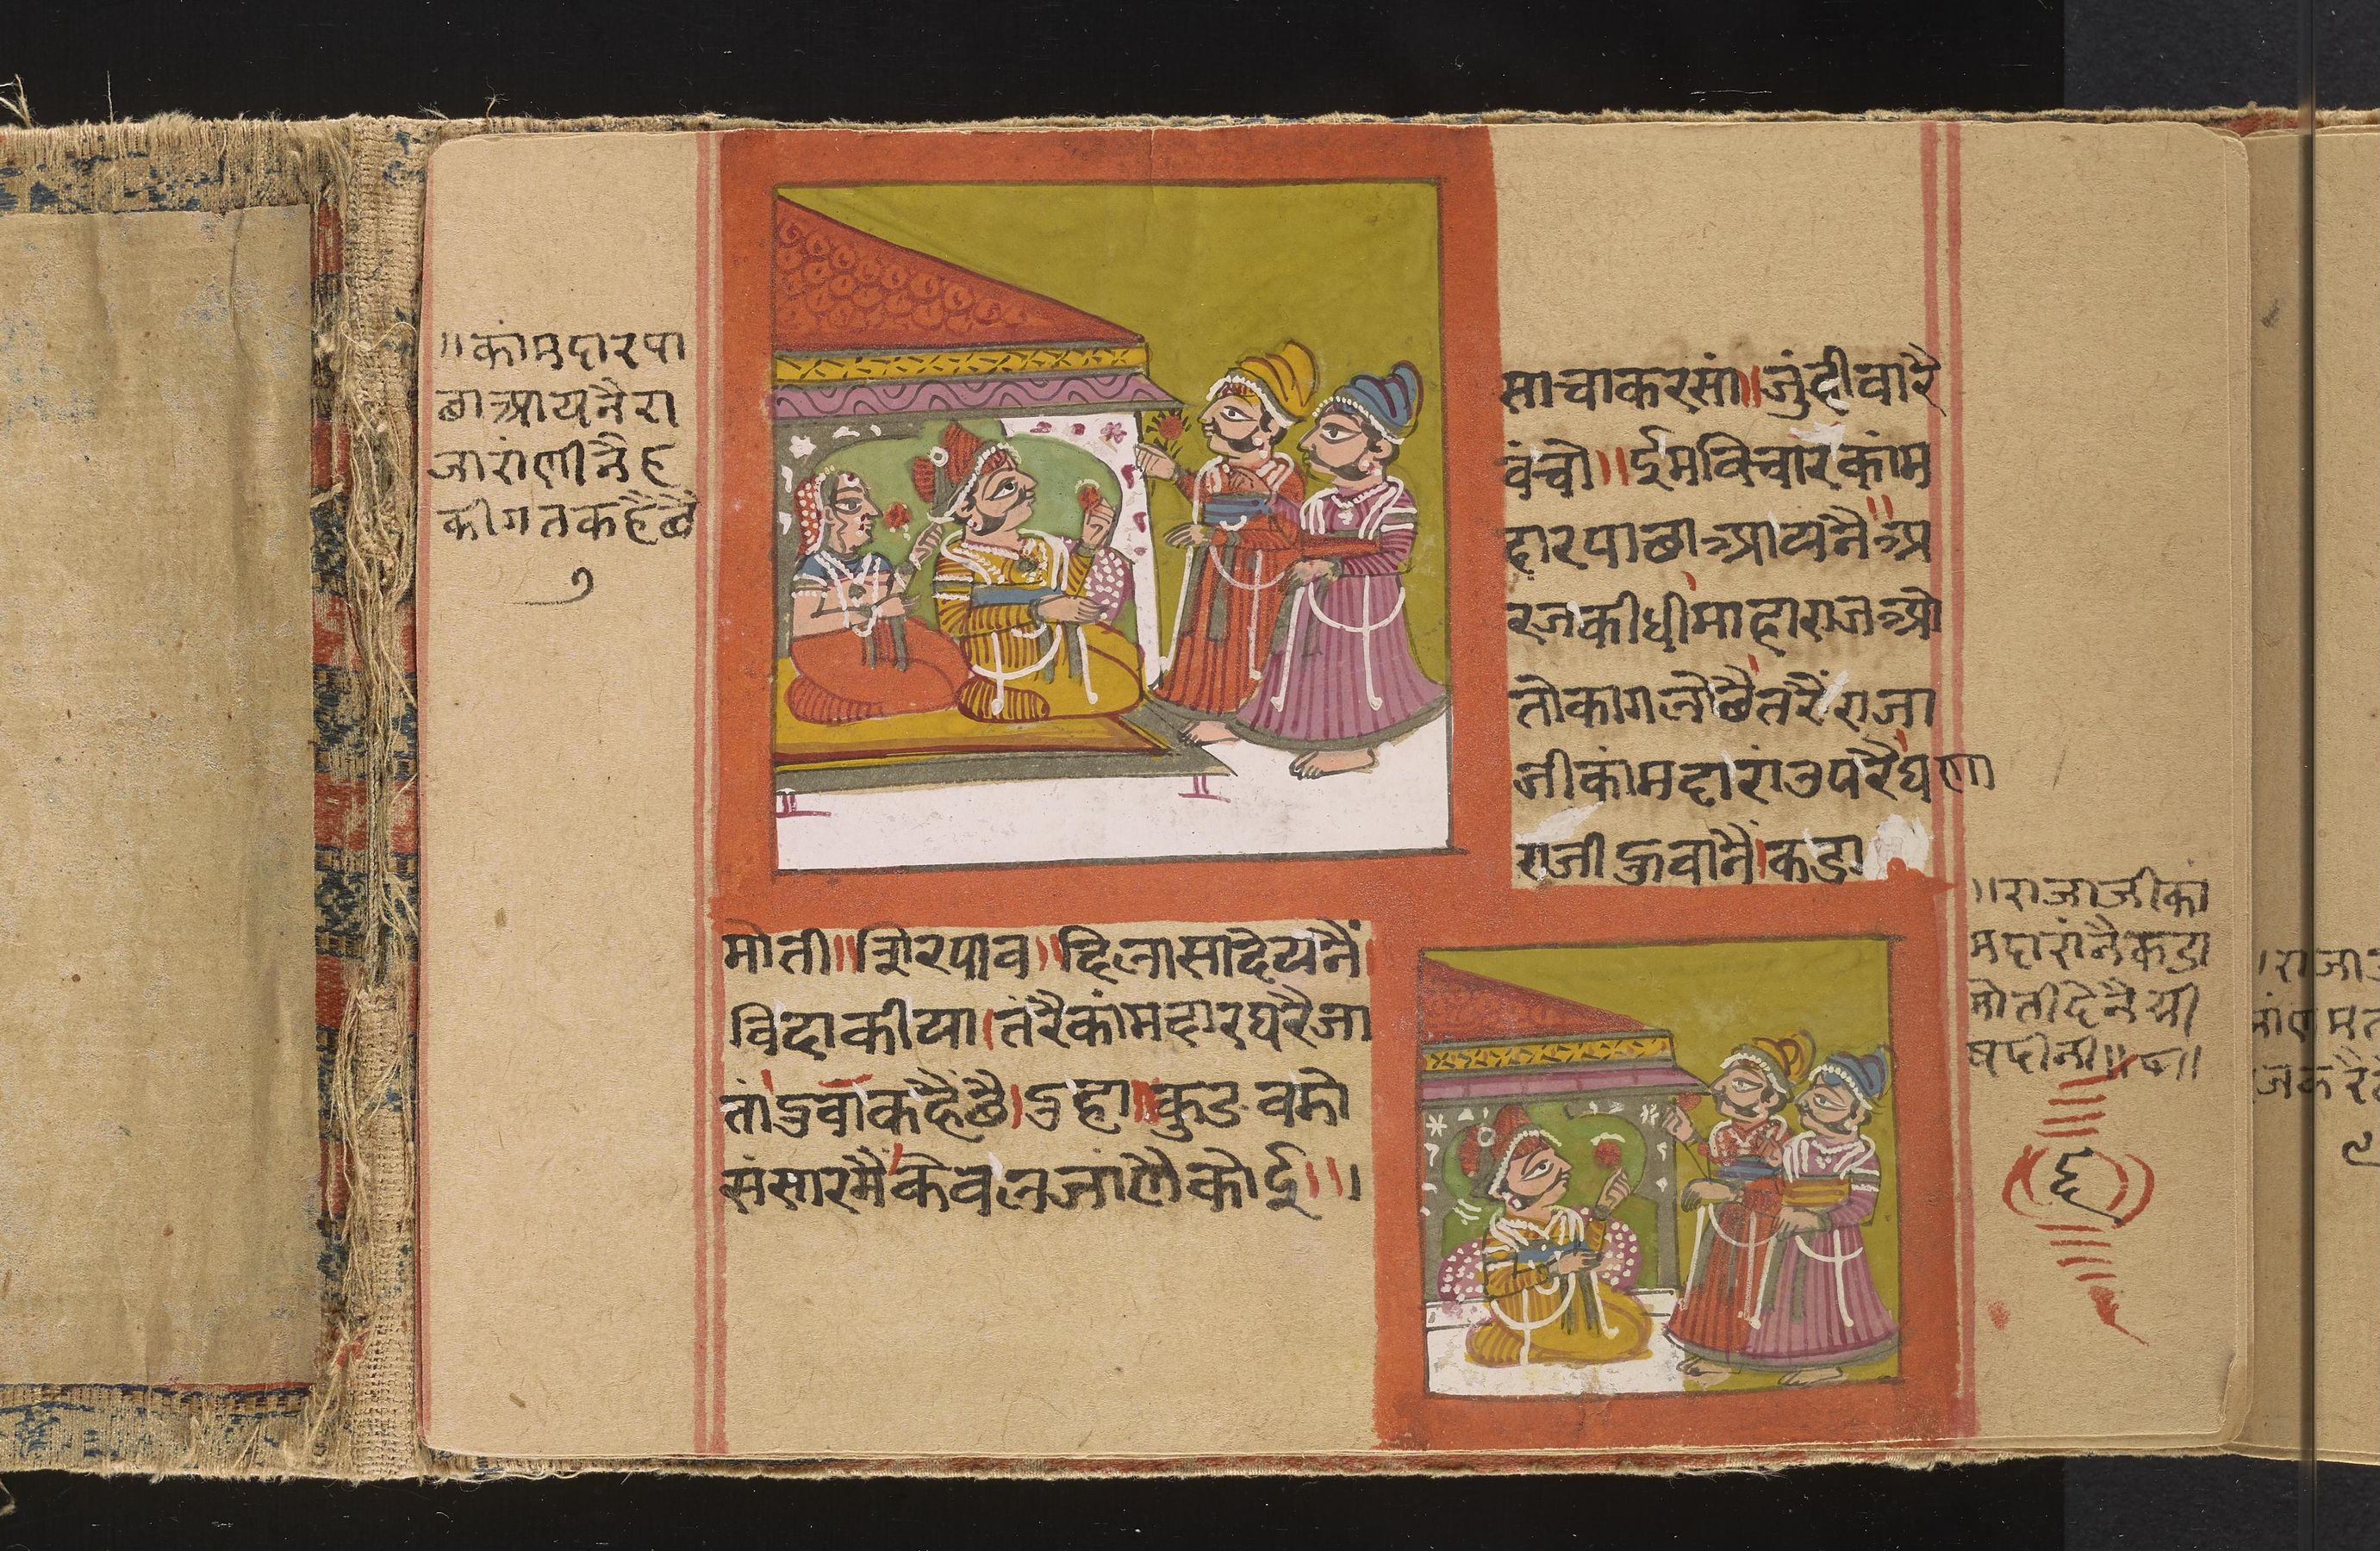 ॥कांमदारपा
छाआयनैरा
जारांणीनैह
कीगतकहैछै
७
साचाकरसां॥जुंहीवारै
वंचो॥ईमविचारकांम
दारपाछाआयनैअ
रजकीधीमाहाराजओ
तोकागलोछैतरैराजा
जीकांमदारांउपरैघणा
राजीहुवानैकडा
मोती॥सिरपाव॥दिलासादेयनै
विदाकीया।तरैकांमदारघरैजा
तांहुवाकहैछै।दुहा॥कुड वमो
संसारमैकेवलजाणैकोई॥।
॥राजाजीकां
मदारांनैकडा
मोतीदेनैसी
षदीनी॥८॥
८